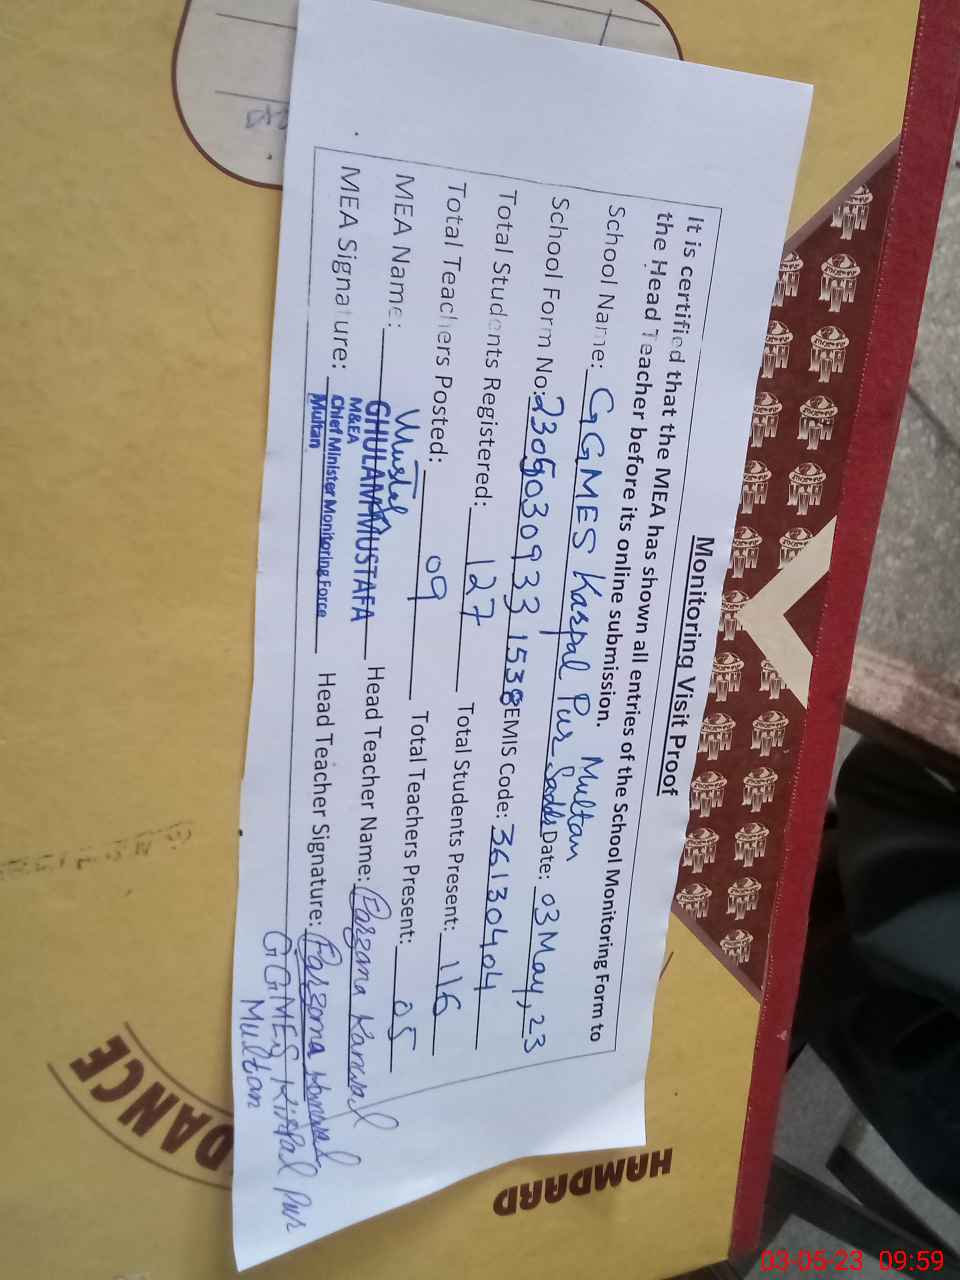 Monitoring Visit Proof
It is certified that the MEA has shown all entries of the School Monitoring Form to
the Head Teacher before its online submission.
School Name: GGMES Kaspal Pur Multan
School Form No: 23050309331538 Date: 03 May, 23
Total Students Registered: 127 EMIS Code: 36130404
Total Teachers Posted: 09 Total Students Present: 116
MEA Name: GHULAM MUSTAFA Total Teachers Present: 05
MEA Signature: M&EA Head Teacher Name: Farzana Kanwal
Chief Minister Monitoring Force
Multan
Head Teacher Signature: Farzana Kanwal
GGMES Pur
Multan
HAMDARD
DANCE
03-05-23 09:59